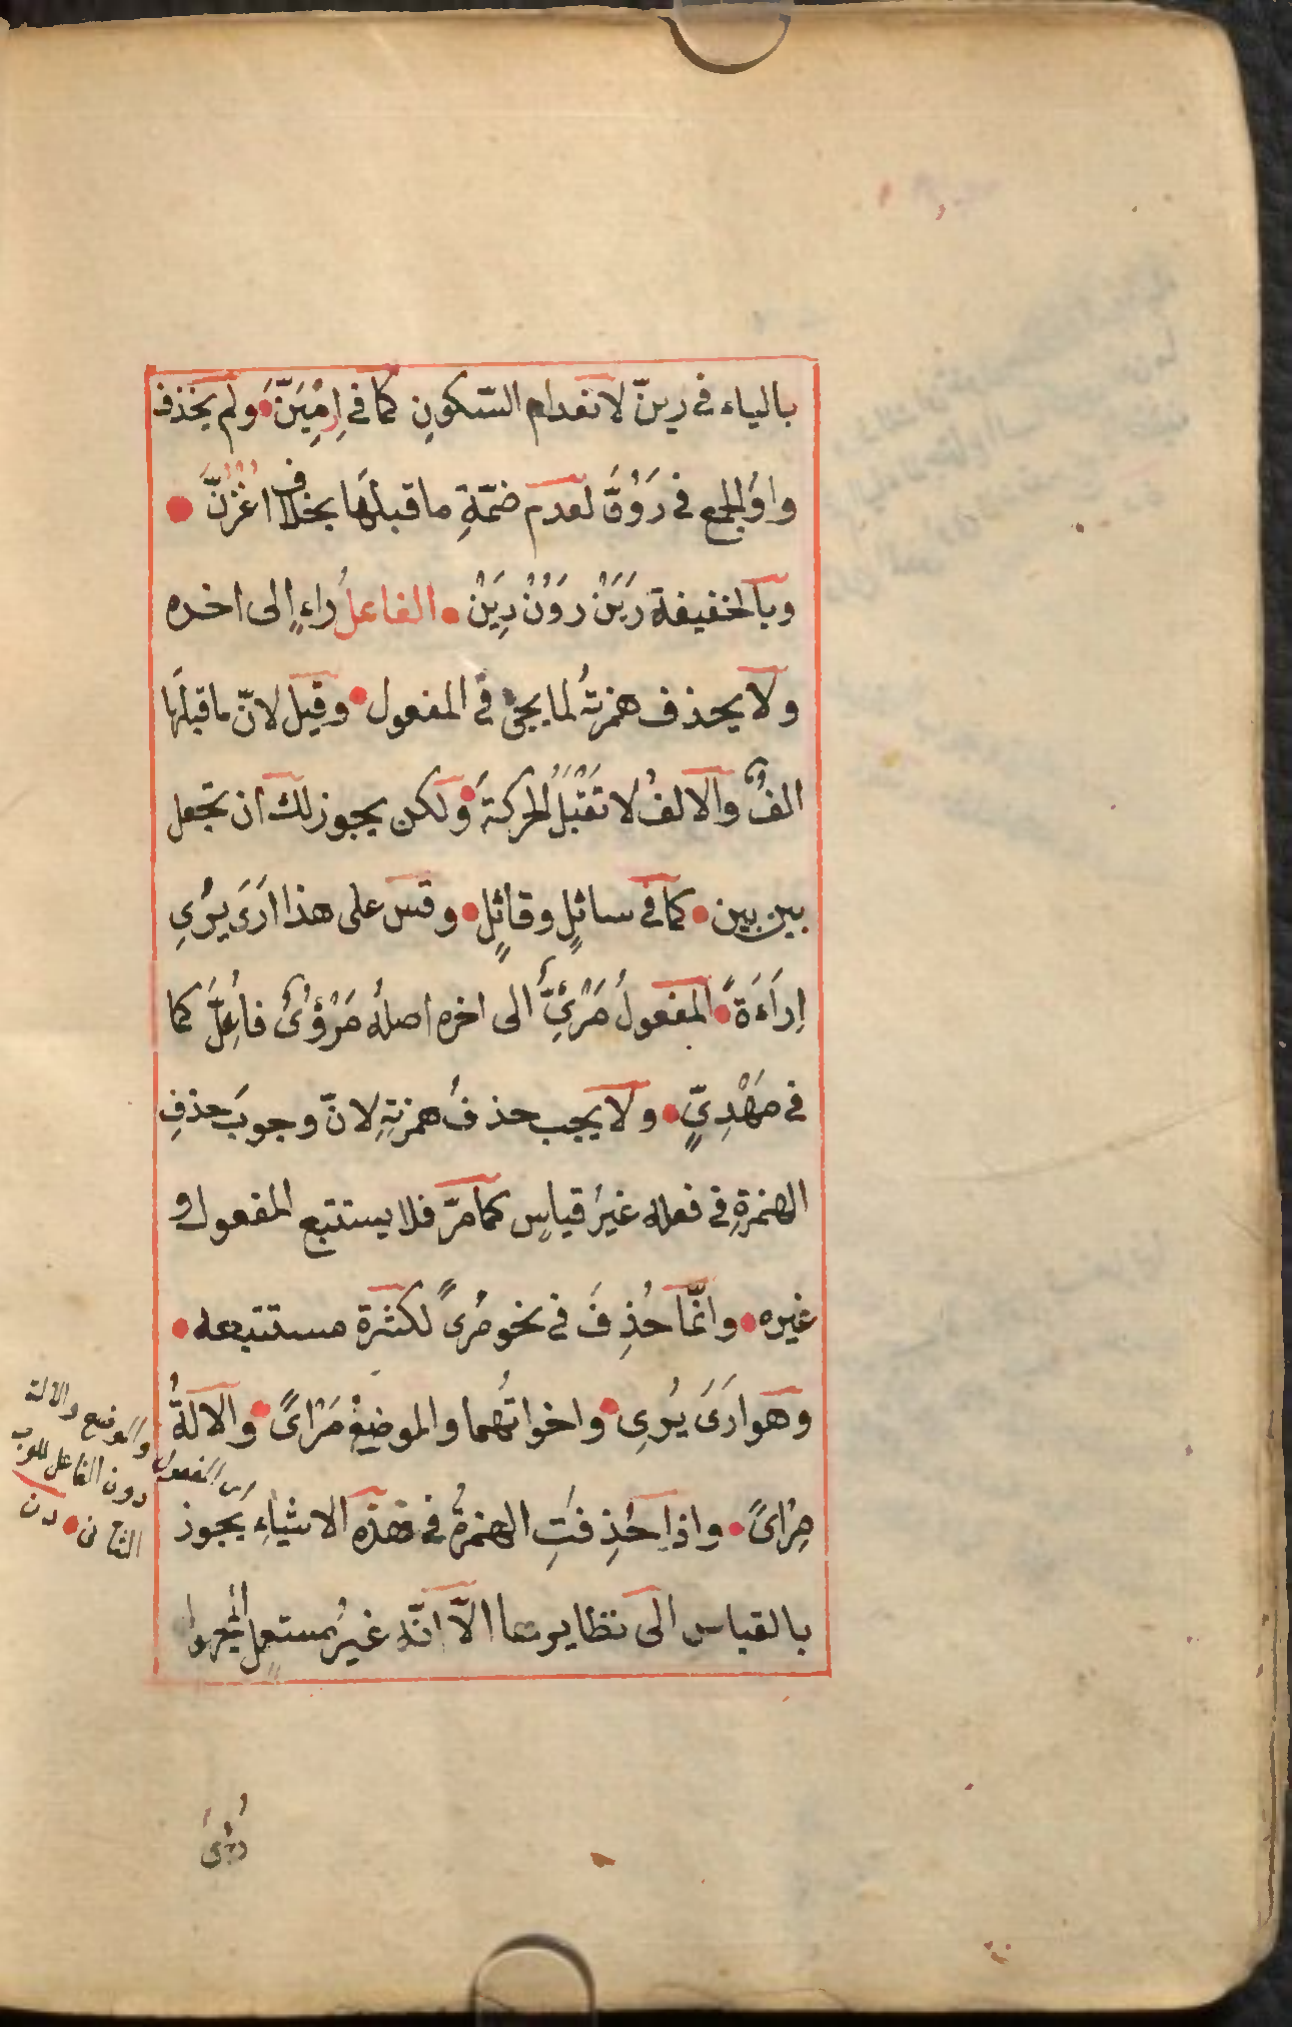 بالياء فى رينّ لانعدام السّكونِ كما فى اِرْمِيَنَّ ولم يحذف
واوُ الجمع فى رَوُنَّ لعدم ضمّةِ ما قبلها بخلاف اغْزُنَّ
وبالخفيفة رَيَنْ رَوُنْ رِيَنْ الفاعلُ راءٍ الى اخره
ولا يحذف همزتُه لما يجئ فى المفعول وقيل لانّ ما قبلَها
الفٌ والالفُ لا تَقْبَلُ الحركةَ ولكن يجوز لك ان تجعل
بين بين كما فى سائلٍ وقائلٍ وقس على هذا اَرَىَ يُرِى
اِرَاءَةً المفعولُ مَرْئِيٌّ الى اخره اصلُه مَرْؤُىٌ فاُعِلَّ كما
فى مَهْدِيٍّ ولا يجب حذفُ همزتِهِ لانّ وجوبَ حذفِ
الهمزةِ فى فعله غيرُ قياسٍ كما مرّ فلا يستتبع المفعول و
غيره وانّما حُذِفَ فى نحو مُرىً لكثرة مستتبعه
وهو اَرَىَ يُرِى واخواتُهما والموضِعُ مَرْاىً والالةُ
مِرْاىً واذا حُذِفَتِ الهمزةُ فى هذه الاشياءِ يَجوز
بالقياس الى نظايرها الاّ انّه غيرُ مستعملٍ المجهول
والموضع والالة
من المفعول
دون الفاعل
رُئِىَ